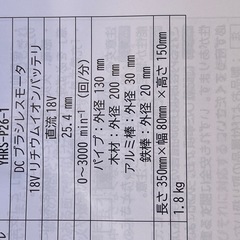 YHRS-P26-1
DC ブラシレスモータ
18V リチウムイオンバッテリ
直流 18V
25.4 mm
0～3000 min⁻¹ (回/分)
パイプ：外径 130 mm
木材：外径 200 mm
アルミ棒：外径 30 mm
鉄棒：外径 20 mm
長さ 350mm×幅 80mm ×高さ 150mm
1.8 kg